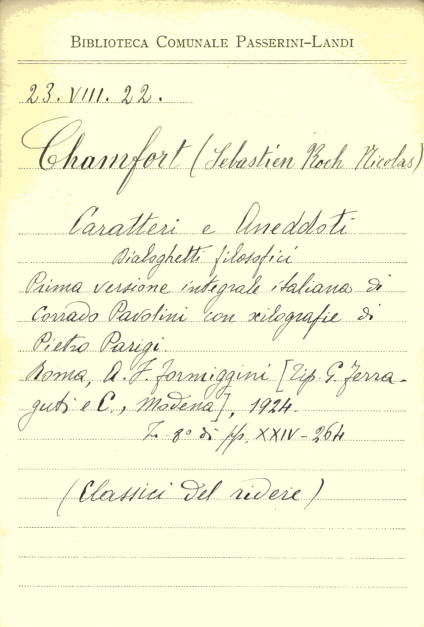 BIBLIOTECA COMUNALE PASSERINI-LANDI
23. VIII. 22.
Chamfort (Sebastien Roch Nicolas)
Caratteri e Aneddoti
Dialoghetti filosofici
Prima versione integrale italiana di
Corrado Pavolini con xilografie di
Pietro Parigi.
Roma, A. F. Formiggini [Tip. G. Ferra-
guti e C., Modena], 1924.
8º di pp. XXIV-264
(Classici del ridere)